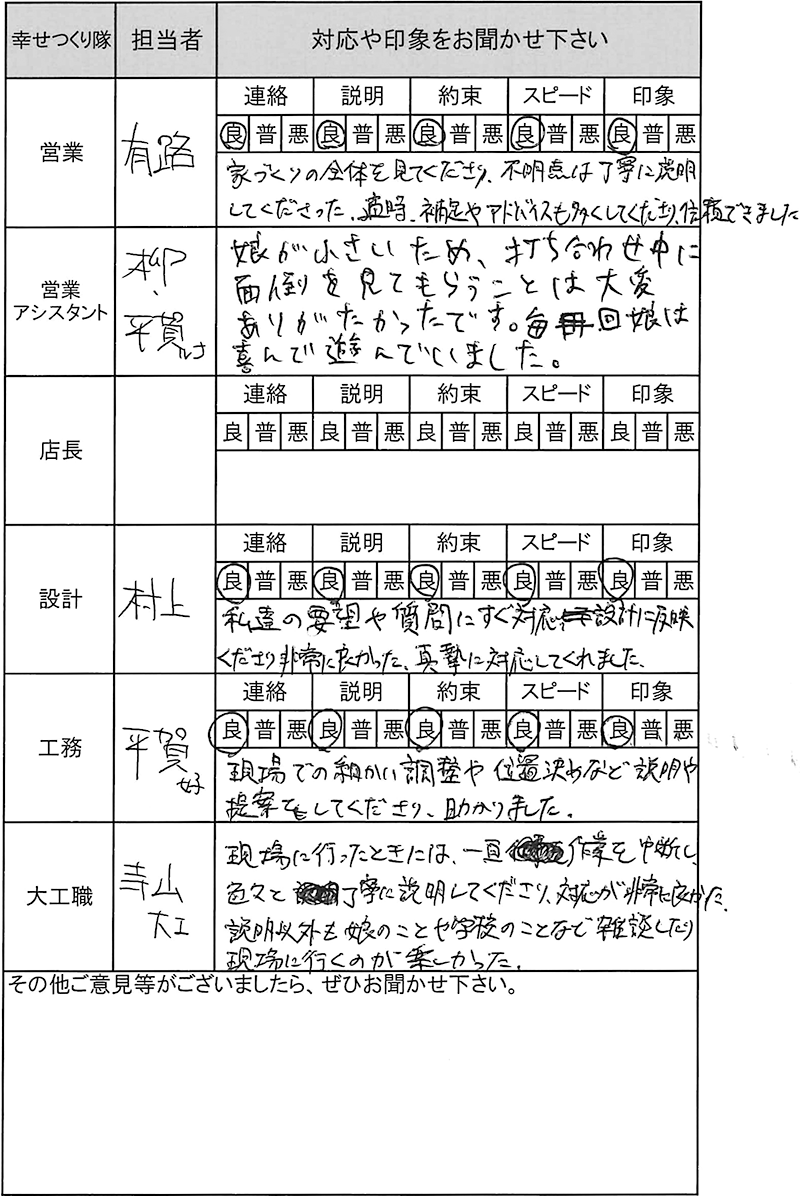 幸せつくり隊 担当者 対応や印象をお聞かせ下さい
連絡 説明 約束 スピード 印象
良 普 悪 良 普 悪 良 普 悪 良 普 悪 良 普 悪
営業 有路
家づくりの全体を見てくださり、不明点は丁寧に説明
してくださった、適時、補足やアドバイスも多くしてくださり、信頼できました
営業
アシスタント
柳・
平賀
娘が小さいため、打ち合わせ中に
面倒を見てもらうことは大変
ありがたかったです。毎回娘は
喜んで遊んでいました。
連絡 説明 約束 スピード 印象
良 普 悪 良 普 悪 良 普 悪 良 普 悪 良 普 悪
店長
連絡 説明 約束 スピード 印象
良 普 悪 良 普 悪 良 普 悪 良 普 悪 良 普 悪
設計 村上
私達の要望や質問にすぐ対応、設計に反映
くださり非常に良かった、真摯に対応してくれました、
連絡 説明 約束 スピード 印象
良 普 悪 良 普 悪 良 普 悪 良 普 悪 良 普 悪
工務 平賀好
現場での細かい調整や位置決めなど説明や
提案をしてくださり、助かりました。
大工職
寺山
大工
現場に行ったときには、一旦作業を中断し、
色々と丁寧に説明してくださり、対応が非常に良かった、
説明以外も娘のことや学校のことなど雑談したり
現場に行くのが楽しかった。
その他ご意見等がございましたら、ぜひお聞かせ下さい。